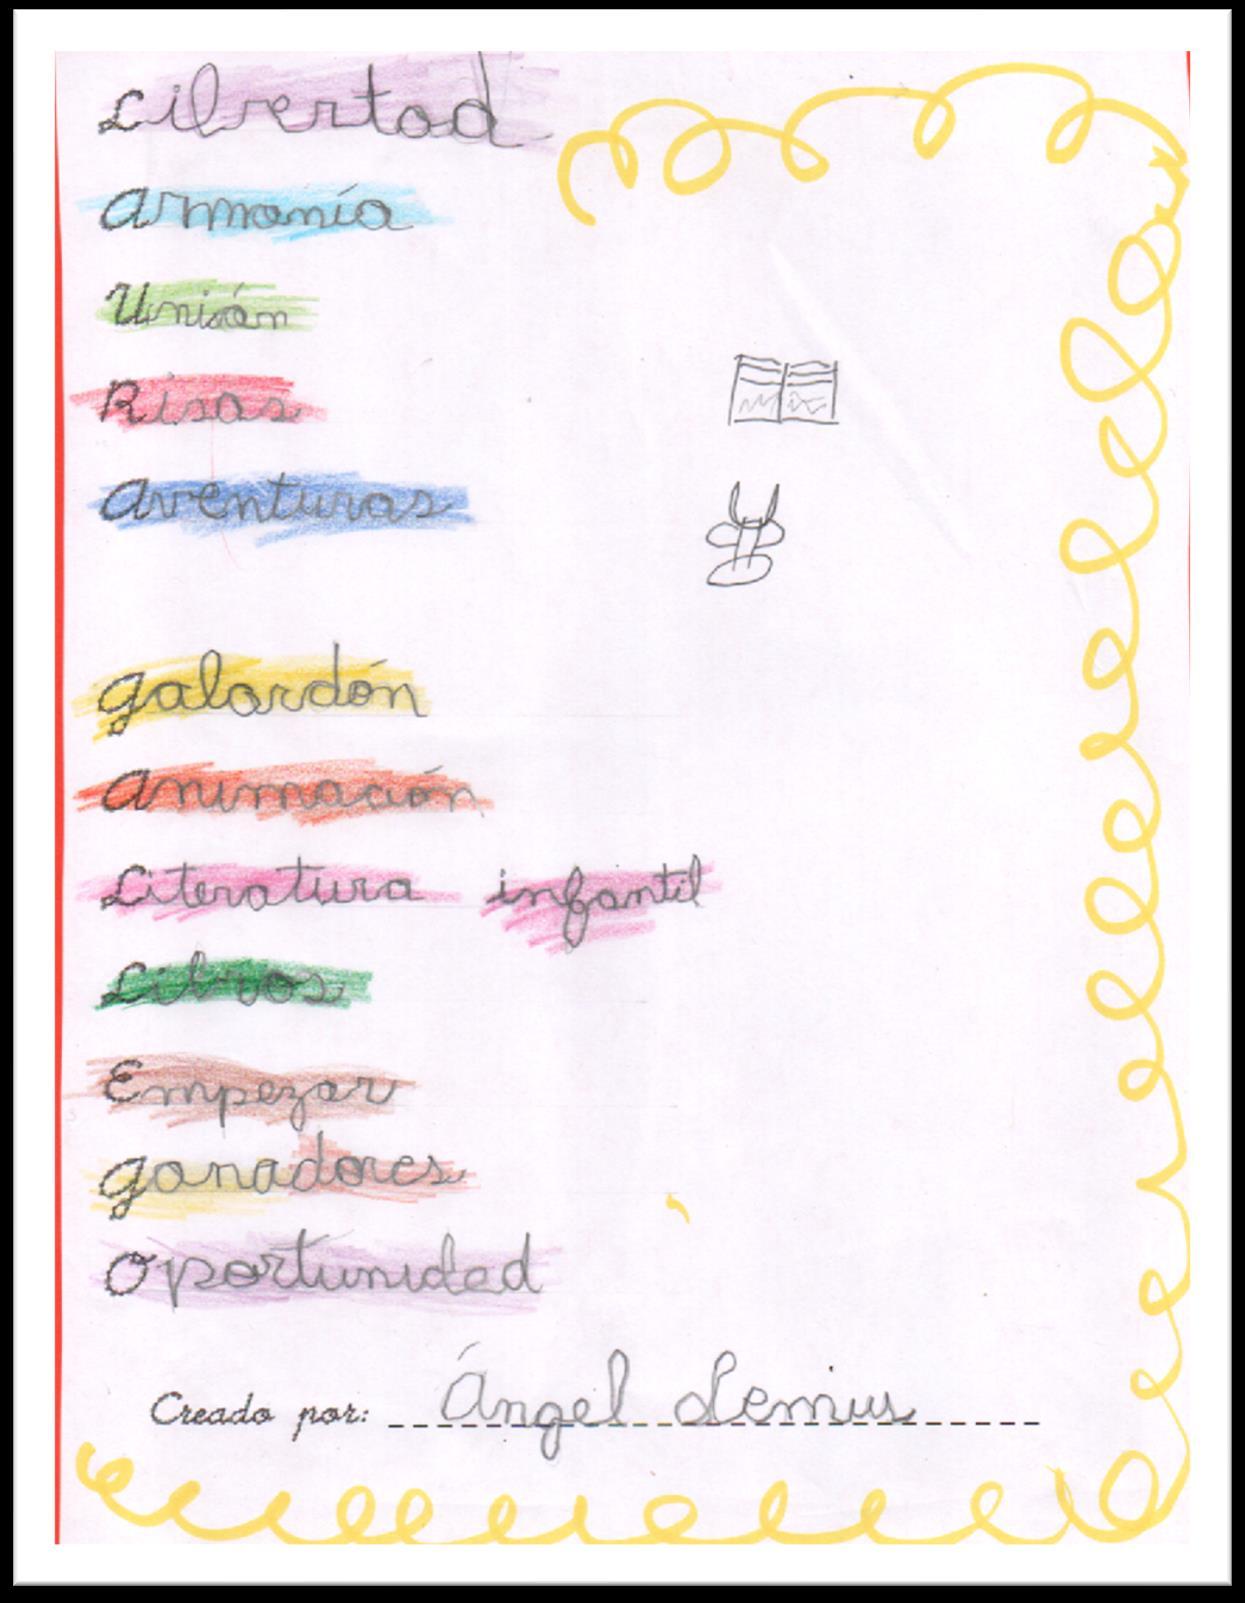 Libertad
Armonía
Unión
Risas
Aventuras
galardón
Animación
Literatura infantil
Libros
Empezar
ganadores
Oportunidad
Creado por: Ángel Lemus